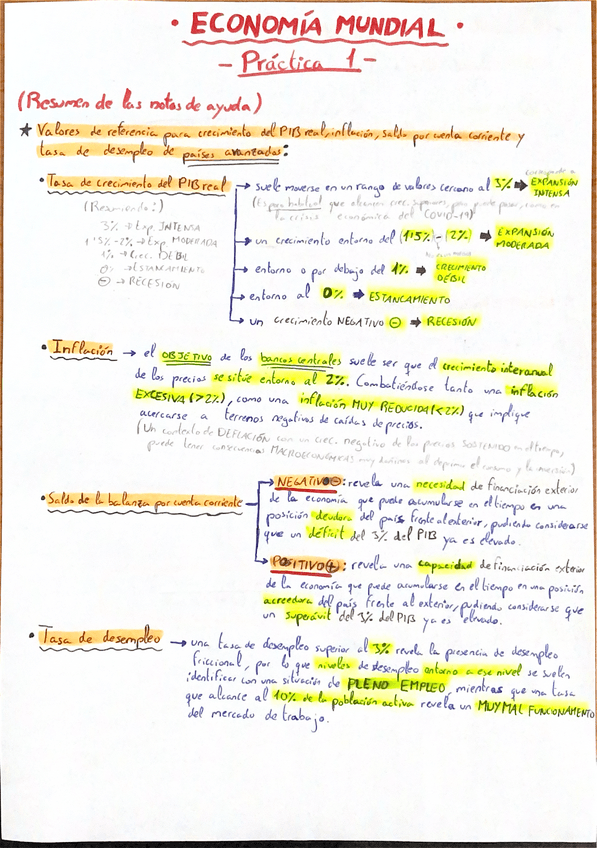 · ECONOMÍA MUNDIAL ·
- Práctica 1 -
(Resumen de las notas de ayuda)
★ Valores de referencia para crecimiento del PIB real, inflación, saldo por cuenta corriente y
tasa de desempleo de países avanzados:
· Tasa de crecimiento del PIB real
(Resumiento:)
3% → Exp. INTENSA
1'5% - 2% → Exp MODERADA
1% → Crec. DÉBIL
0% → ESTANCAMIENTO
⊖ → RECESIÓN
→ suele moverse en un rango de valores cercano al 3% ➡ EXPANSIÓN INTENSA
que alcance crec. superiores, pero puede pasar, como en
la crisis económica del COVID-19)
→ un crecimiento entorno del (1'5% - 2%) ➡ EXPANSIÓN MODERADA
→ entorno o por debajo del 1% ➡ CRECIMIENTO DÉBIL
→ entorno al 0% ➡ ESTANCAMIENTO
→ un crecimiento NEGATIVO ⊖ ➡ RECESIÓN
· Inflación → el OBJETIVO de los bancos centrales suele ser que el crecimiento interanual
de los precios se sitúe entorno al 2%. Combatiéndose tanto una inflación
EXCESIVA (>2%), como una inflación MUY REDUCIDA (<2%) que implique
acercarse a terrenos negativos de caídas de precios.
(Un contexto de DEFLACIÓN con un crec. negativo de los precios SOSTENIDO en el tiempo,
puede tener consecuencias MACROECONÓMICAS muy dañinas al deprimir el consumo y la inversión)
· Saldo de la balanza por cuenta corriente
→ NEGATIVO ⊖: revela una necesidad de financiación exterior
de la economía que puede acumularse en el tiempo en una
posición deudora del país frente al exterior, pudiendo considerarse
que un déficit del 3% del PIB ya es elevado.
→ POSITIVO ⊕: revela una capacidad de financiación exterior
de la economía que puede acumularse en el tiempo en una posición
acreedora del país frente al exterior, pudiendo considerarse que
un superávit del 3% del PIB ya es elevado.
· Tasa de desempleo → una tasa de desempleo superior al 3% revela la presencia de desempleo
friccional, por lo que niveles de desempleo entorno a ese nivel se suelen
identificar con una situación de PLENO EMPLEO, mientras que una tasa
que alcance al 10% de la población activa revela un MUY MAL FUNCIONAMENTO
del mercado de trabajo.